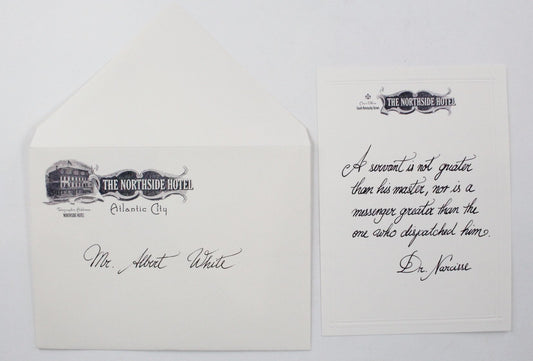 THE NORTHSIDE HOTEL
Atlantic City
NORTHSIDE HOTEL
Mr. Albert White
THE NORTHSIDE HOTEL
A servant is not greater
than his master, nor is a
messenger greater than the
one who dispatched him.
Dr. Narcisse